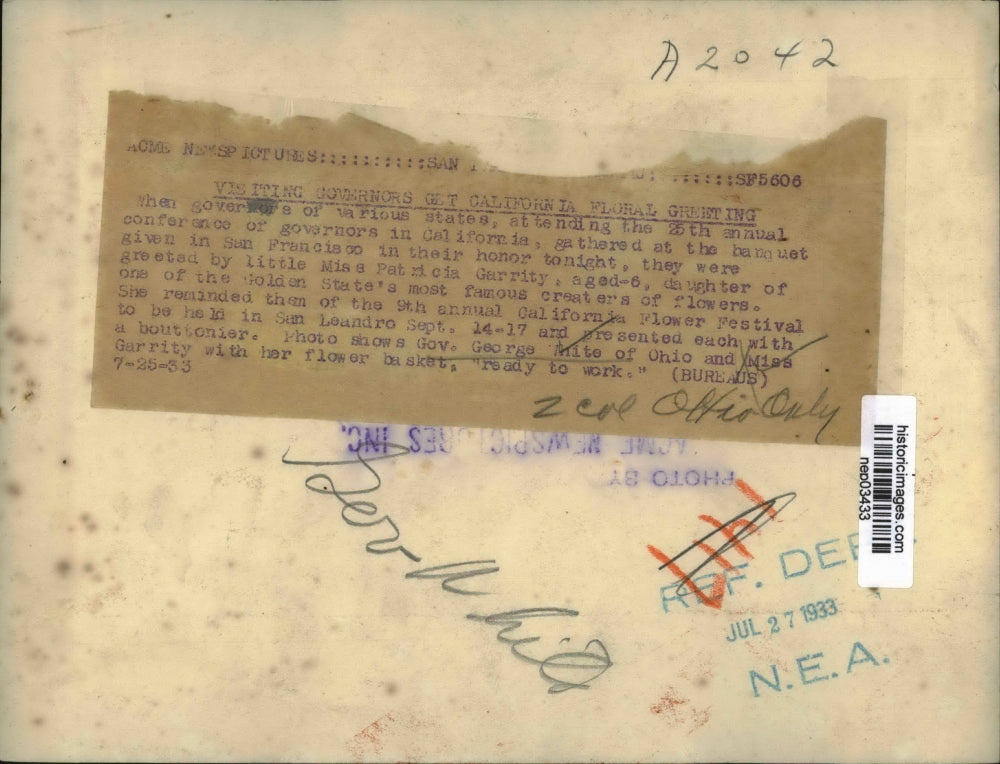 A2042
ACME NEWSPICTURES::::::::::SAN ::::::SF5606
VISITING GOVERNORS GET CALIFORNIA FLORAL GREETING
When governors of various states, attending the 25th annual
conference of governors in California, gathered at the banquet
given in San Francisco in their honor tonight, they were
greeted by little Miss Patricia Garrity, aged-6, daughter of
one of the Golden State's most famous creaters of flowers.
She reminded them of the 9th annual California Flower Festival
to be held in San Leandro Sept. 14-17 and presented each with
a bouttonier. Photo shows Gov. George White of Ohio and Miss
Garrity with her flower basket, "ready to work." (BUREAUS)
7-25-33
2 col Ohio Only
ACME NEWSPICTURES INC.
PHOTO BY
Gov White
historicimages.com
nep03433
REF. DEPT
JUL 27 1933
N.E.A.